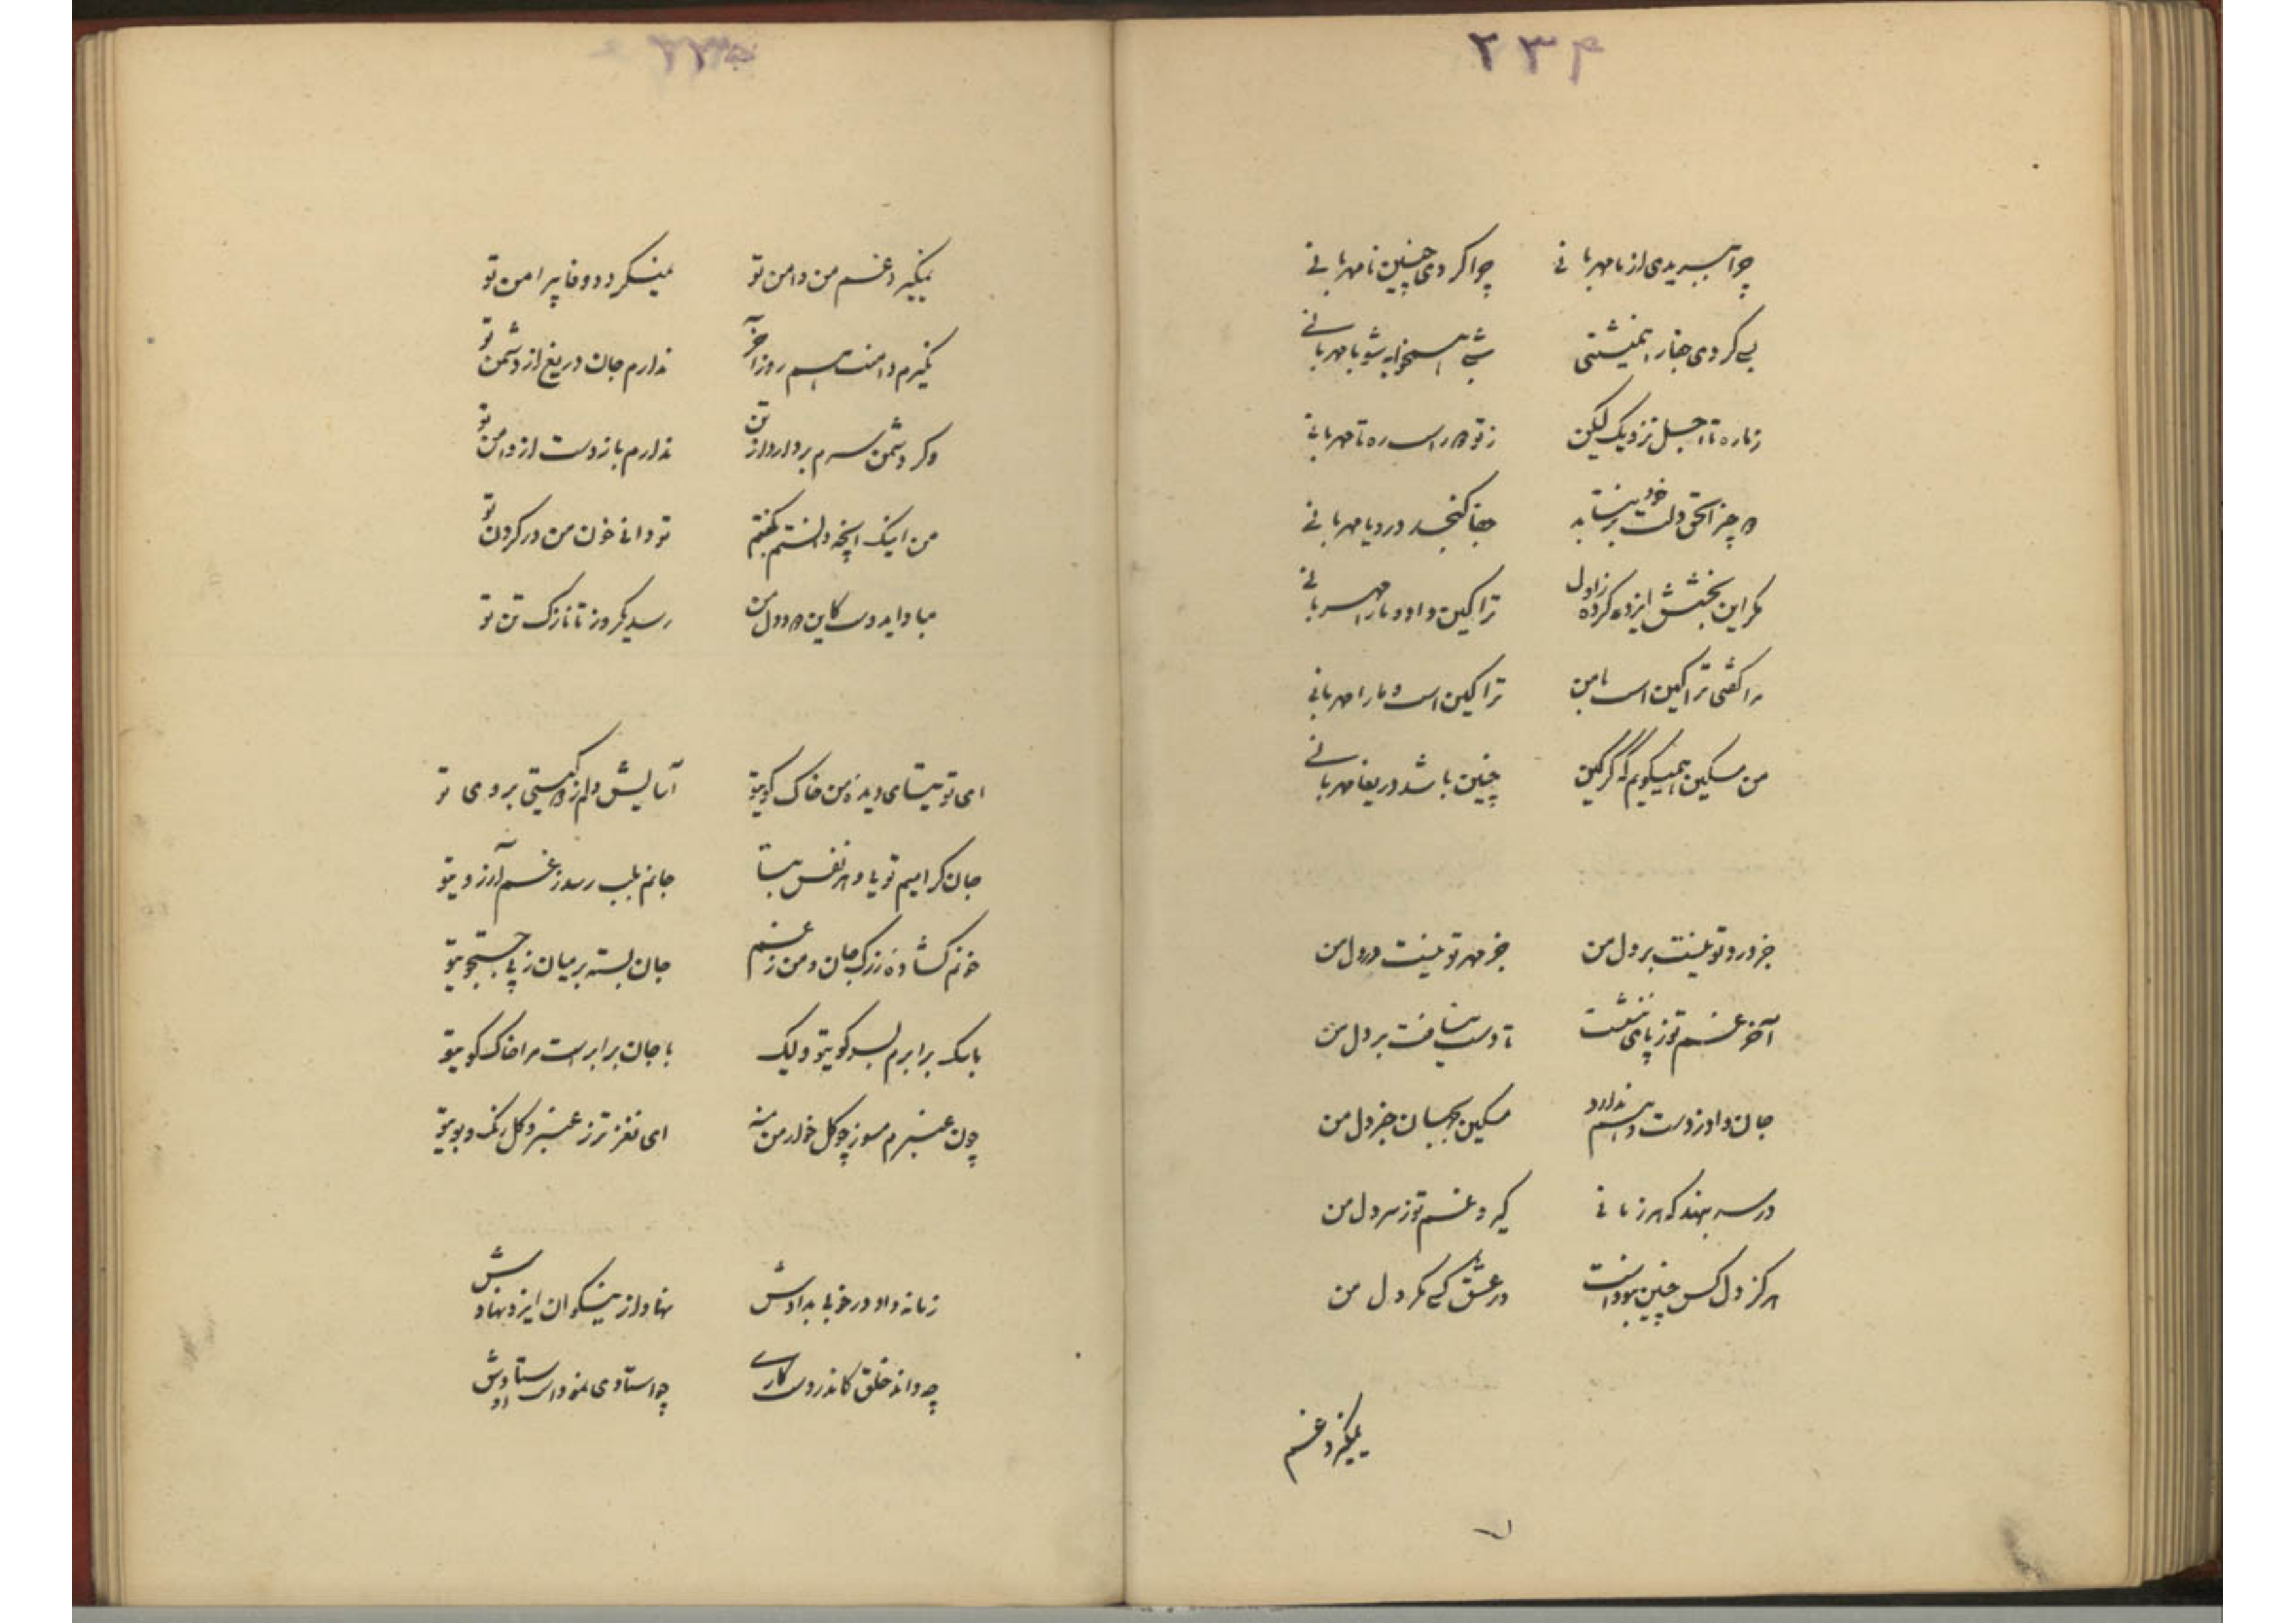 ۲۳۴
چرا ببریدی از ما مهربانی چرا کردی چنین نامهربانی
بسی کردی جفا را همنشینی شبی همخوابه شو با مهربانی
ز ما ره تا اجل نزدیک لیکن ز تو دور است ره تا مهربانی
جفا گنجد درو یا مهربانی
مگر این بخشش ایزد کرده ز اول ترا کین داد و ما را مهربانی
مرا گفتی ترا کین است با من ترا کین است و ما را مهربانی
من مسکین همیگویم که گر کین چنین باشد دریغا مهربانی
جز درد تو نیست بر دل من جز مهر تو نیست در دل من
آخر غم تو ز پای ننشست تا دست نیافت بر دل من
جان داد ز دست و هم ندارد مسکین بجهان جز دل من
در سر بنهد که هر زمانی گیرد غم تو ز سر دل من
هرگز دل کس چنین نبوداست در عشق کسی مگر دل من
نمیگیرد غم
نمیگیرد غم من دامن تو نمیگردد وفا پیرامن تو
بگیرم دامنت هم روز آخر ندارم جان دریغ از دشمن تو
وگر دشمن سرم بردارد از تن ندارم باز دست از دامن تو
من اینک آنچه دانستم بگفتم تو دانی خون من در گردن تو
مبادا ای دوست کاین درد دل من رسد یکروز تا نازک تن تو
ای توتیای دیدهٔ من خاک کوی تو آسایش دلم ز همستی بروی تو
جان گرامیم تو یاد هر نفس بیا جانم بلب رسد ز غم آرزوی تو
خونم گشاده از رگ جان و من ز غم جان بسته بر میان ز پی جستجوی تو
با سگ برابرم بسر کوی تو ولیک با جان برابرست مرا خاک کوی تو
چون عنبرم مسوز چو گل خوار من منه ای نغزتر ز عنبر و گل رنگ و بوی تو
زمانه داد در خوبی بدادش نهاد از نیکوان ایزد نهادش
چه داند خلق کاندر دست کاری چو استادی نمود است اوستادش